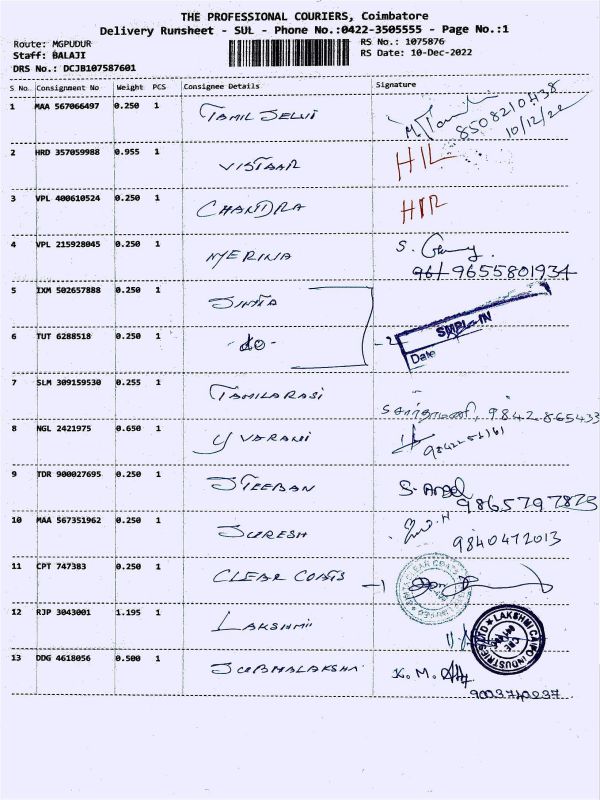 THE PROFESSIONAL COURIERS, Coimbatore
Delivery Runsheet - SUL - Phone No.:0422-3505555 - Page No.:1
Route: MGPUDUR
Staff: BALAJI
DRS No.: DCJB107587601
RS No.: 1075876
RS Date: 10-Dec-2022
S No. Consignment No Weight PCS Consignee Details Signature
1 MAA 567066497 0.250 1 TAMIL SELVI 8508210438
10/12/22
2 HRD 357059988 0.955 1 VISTAAR
3 VPL 400610524 0.250 1 CHANDRA
4 VPL 215928045 0.250 1 S.
9655801934
5 IXM 502657888 0.250 1
6 TUT 6288518 0.250 1 -do- -2
SMPL-IN
Date
7 SLM 309159530 0.255 1 TAMILARASI 9842865433
8 NGL 2421975 0.650 1
9 TDR 900027695 0.250 1 STEEBAN S. 9865797873
10 MAA 567351962 0.250 1 SURESH 9840472013
11 CPT 747383 0.250 1 CLEAR COATS -1
CLEAR COATS
12 RJP 3043001 1.195 1 LAKSHMI
LAKSHMI INDUSTRIES
CBE
13 DDG 4618056 0.500 1 SUBHALAKSHMI K. M.
9003740237